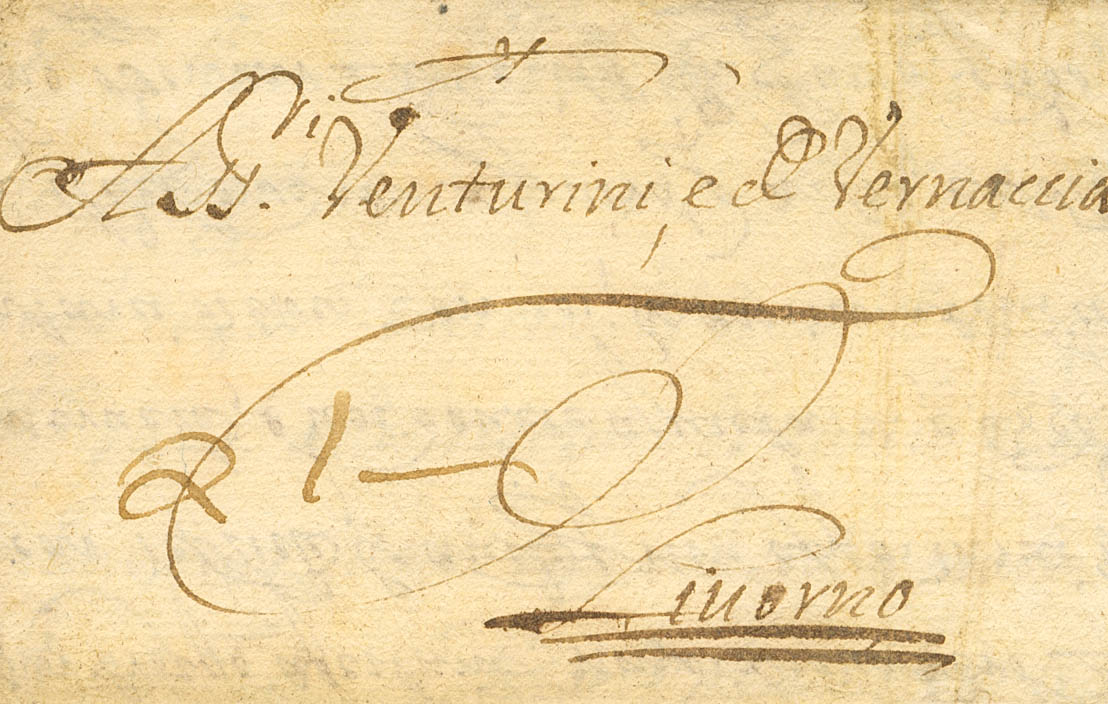 A SS.ri Venturini, e Vernaccia
R 1 —
Liuorno